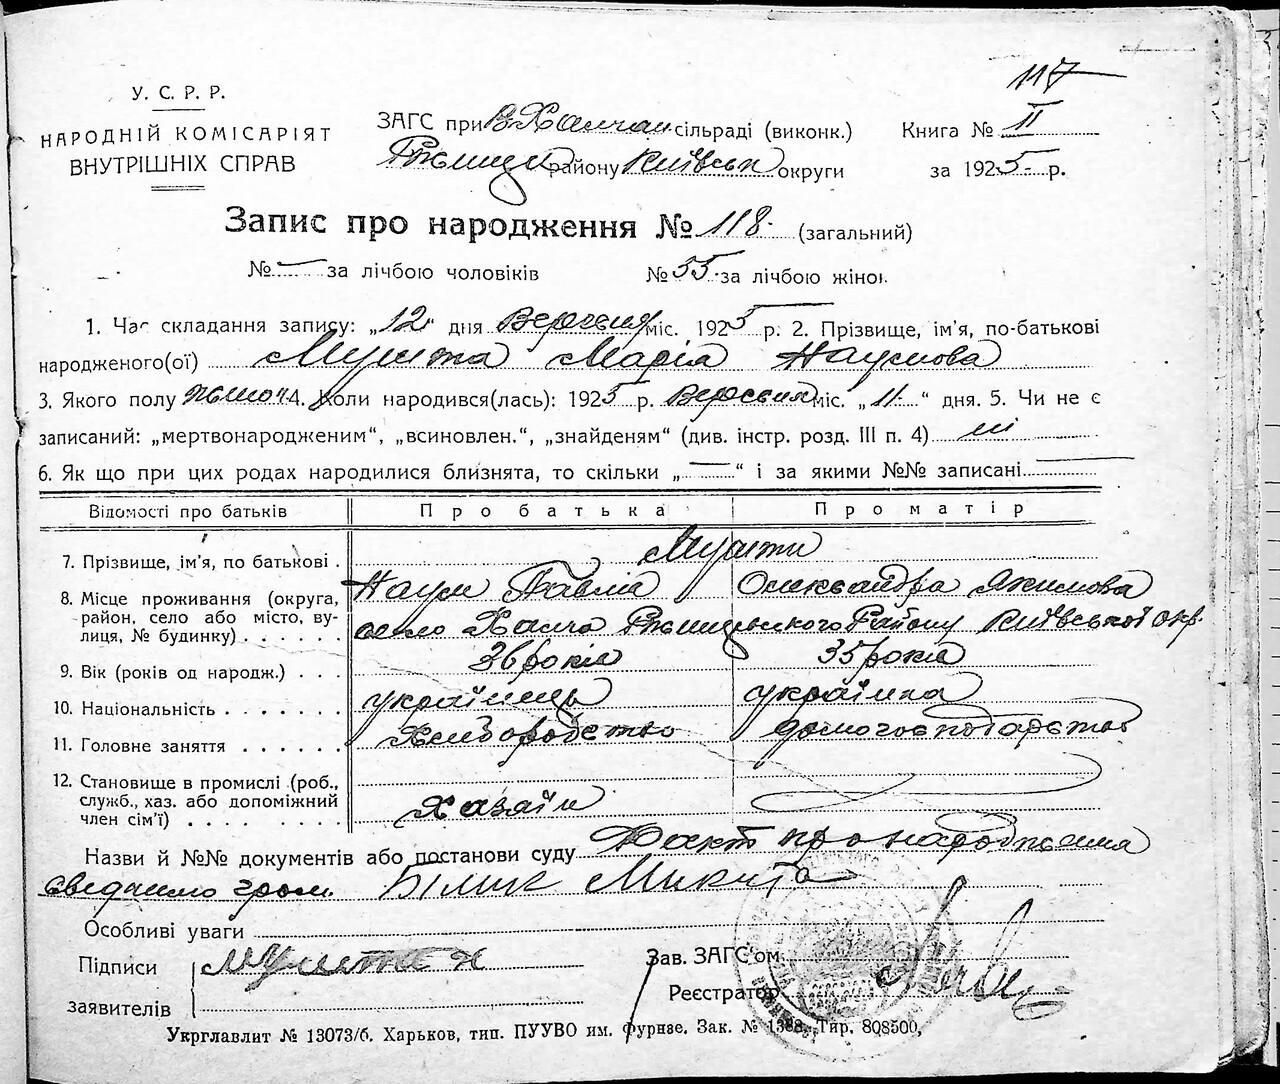 117
У. С. Р. Р.
НАРОДНІЙ КОМІСАРІЯТ
ВНУТРІШНІХ СПРАВ
ЗАГС при В Халчан сільраді (виконк.)
Книга № II
Ржищів району Київськ округи
за 1925 р.
Запис про народження № 118. (загальний)
№ — за лічбою чоловіків № 55. за лічбою жіно.
1. Час складання запису: „12" дня Вересня міс. 1925 р. 2. Прізвище, ім'я, по-батькові
народженого(ої) Мушта Марія Наумова
3. Якого полу жіноч. 4. Коли народився(лась): 1925 р. Вересня міс. „11" дня. 5. Чи не є
записаний: „мертвонародженим", „всиновлен.", „знайденям" (див. інстр. розд. III п. 4) ні
6. Як що при цих родах народилися близнята, то скільки „—" і за якими №№ записані —
Відомості про батьків Про батька Про матір
7. Прізвище, ім'я, по батькові . Мушти
Наум Павлів Олександра Якимова
8. Місце проживання (округа,
район, село або місто, вулиця, № будинку) . . . . . село Халча Ржищівського Району Київської окр.
9. Вік (років од народж.) . . . 36 років 35 років
10. Національність . . . . . . . українець українка
11. Головне заняття . . . . . . Хліборобство домогосподарство
12. Становище в промислі (роб.,
служб., хаз. або допоміжний
член сім'ї) . . . . . . . . Хазяїн
Назви й №№ документів або постанови суду Факт про народження
свідчить гром. Білик Микита
Особливі уваги
Підписи Мушта Н
заявителів
Зав. ЗАГС'ом
Реєстратор
Укрглавлит № 13073/б. Харьков, тип. ПУУВО им. Фурнзе. Зак. № 1388. Тир. 808500.